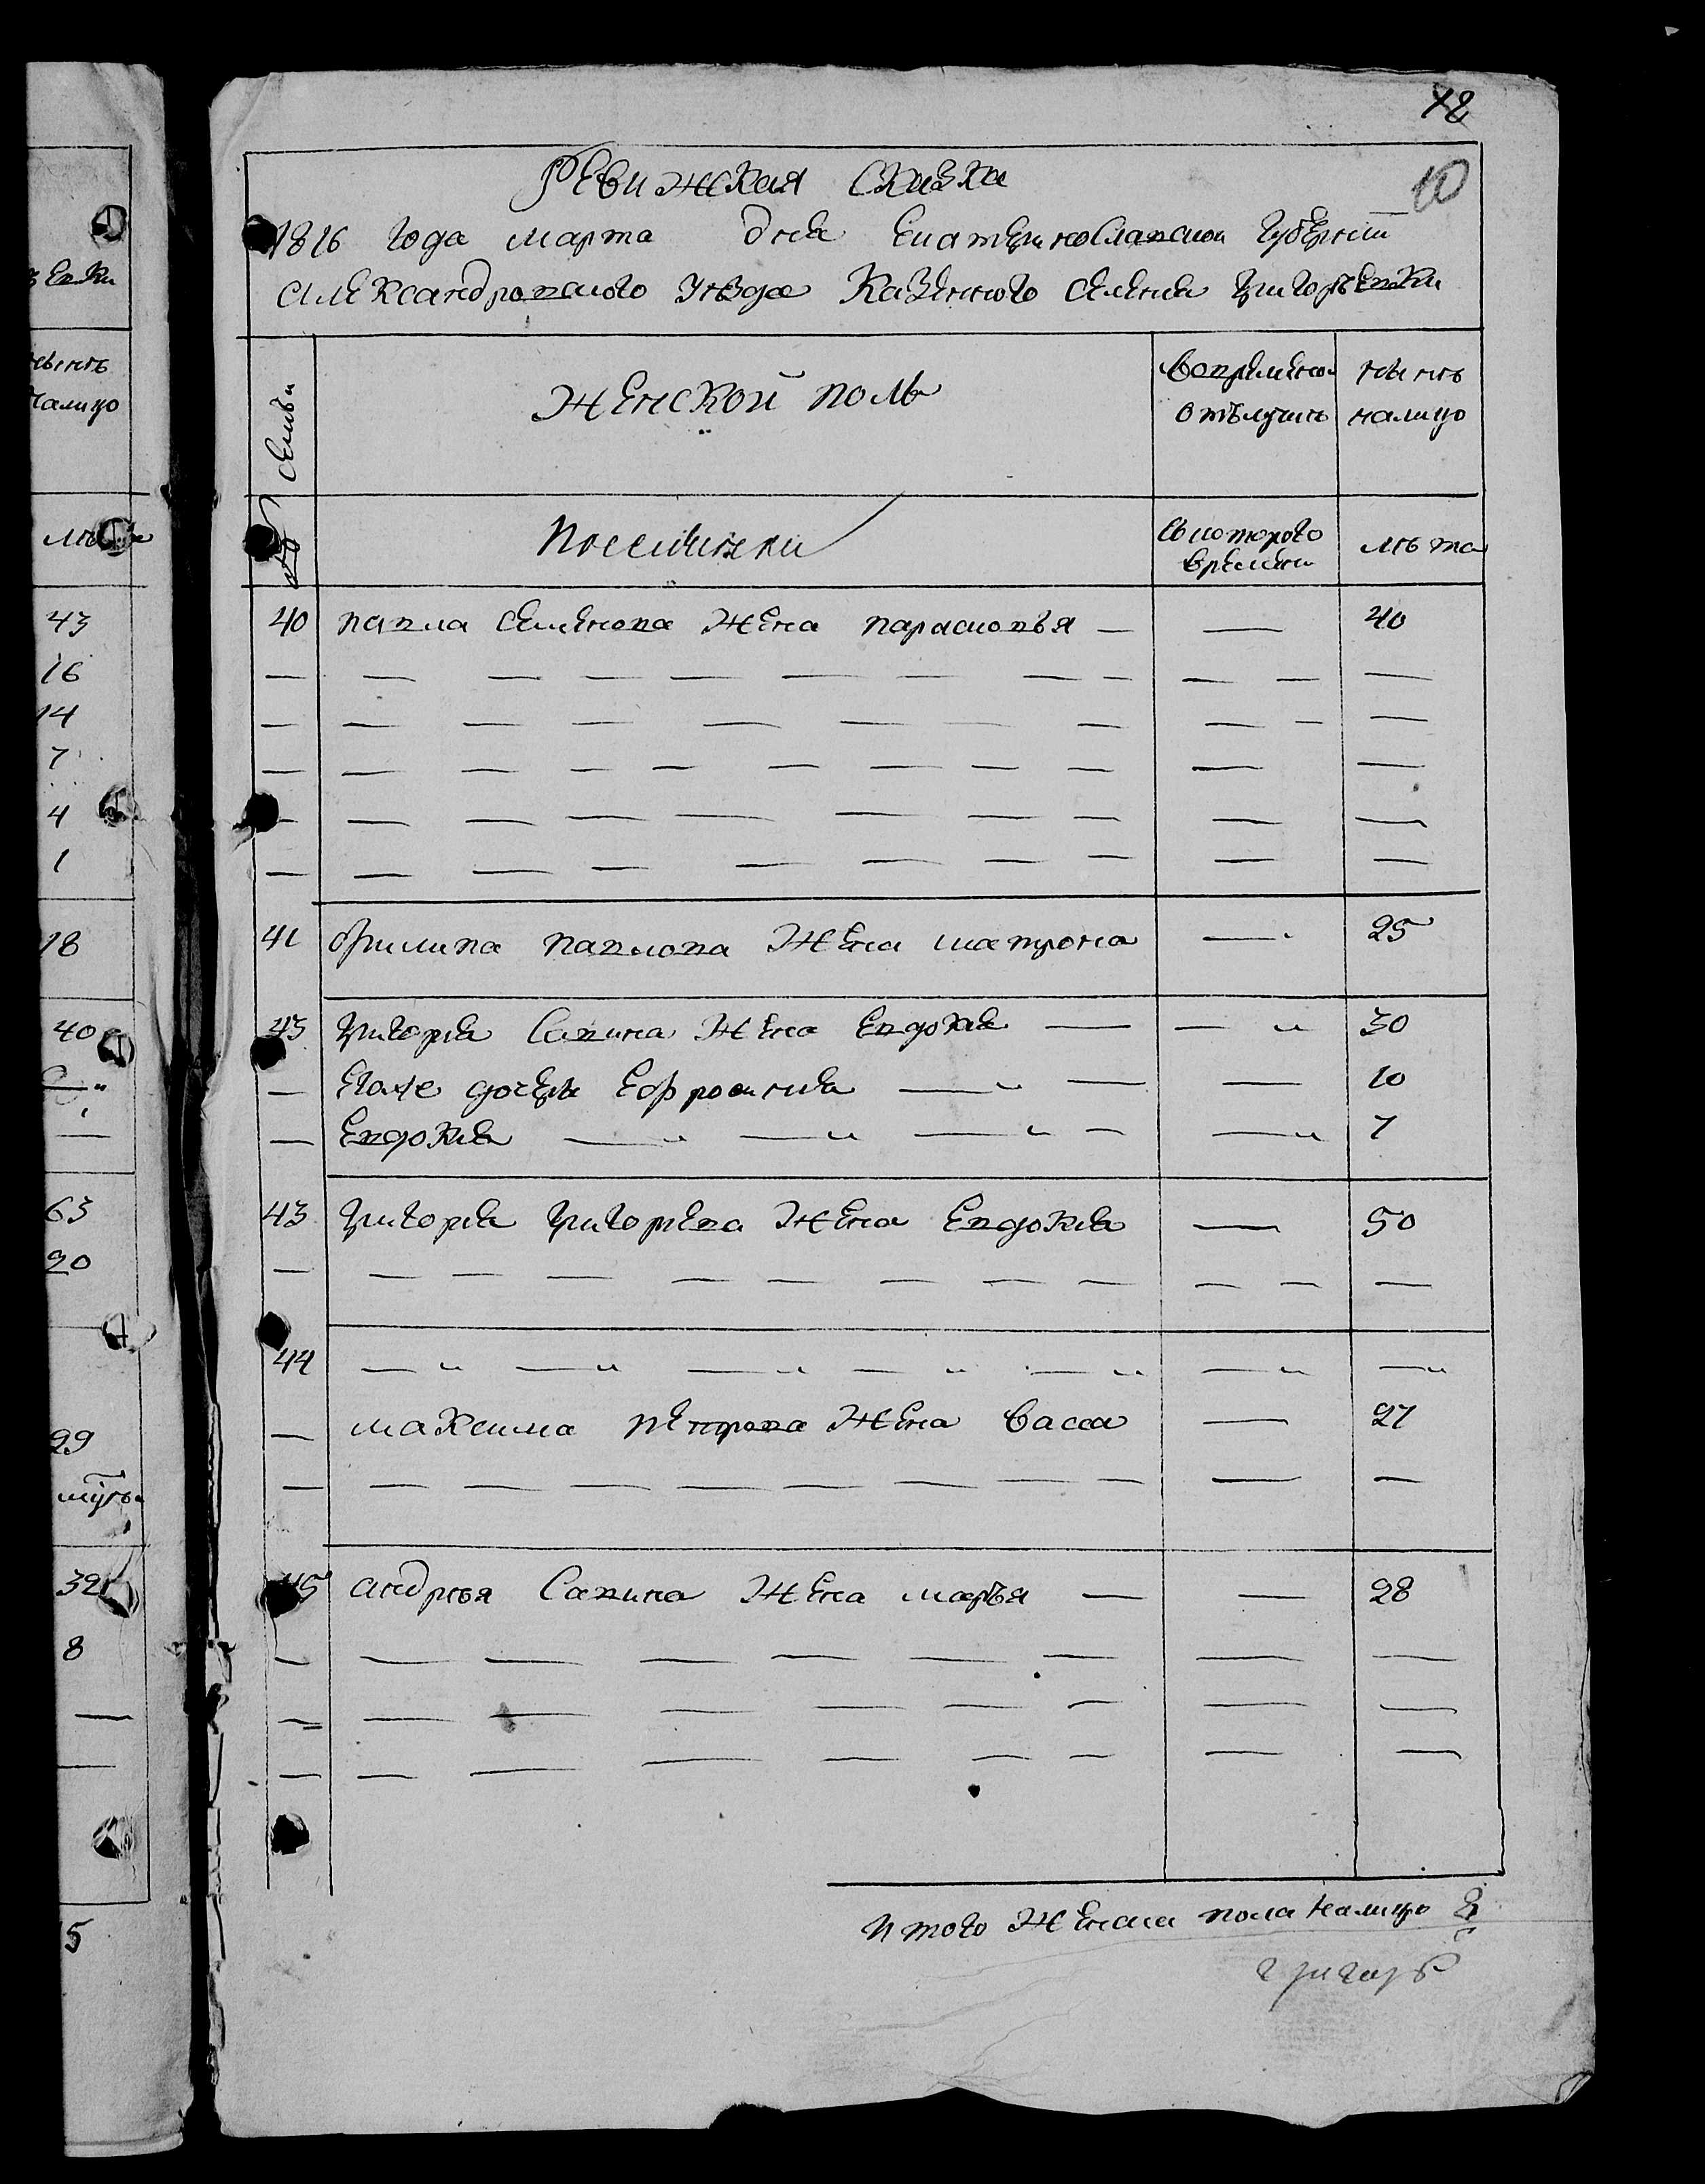 10
Ревижская Сказка
1816 года марта дня Екатеринославской Губернїи
Александровского уезда Казенного селения Григорьевки
семьи
Женской поль
Вовременной
отлучке
ныне
налицо
Поселянки
Съ которого
времяни
лѣта
40 Павла Семенова Жена Парасковья — — 40
41 Филипа Павлова Жена Матрона — 25
43 Григория Савина Жена Евдокия — — 30
— Егоже дочери Ефросиния — — — 10
— Евдокия — — — — — 7
43 Григория Григориева Жена Евдокия — 50
44
— Максима Петрова Жена Васса — 27
45 Андрѣя Савина Жена Марья — — 28
Итого Женска пола налицо 8
женки
ныне
налицо
43
16
14
7
4
1
18
40
63
20
29
32
8
5